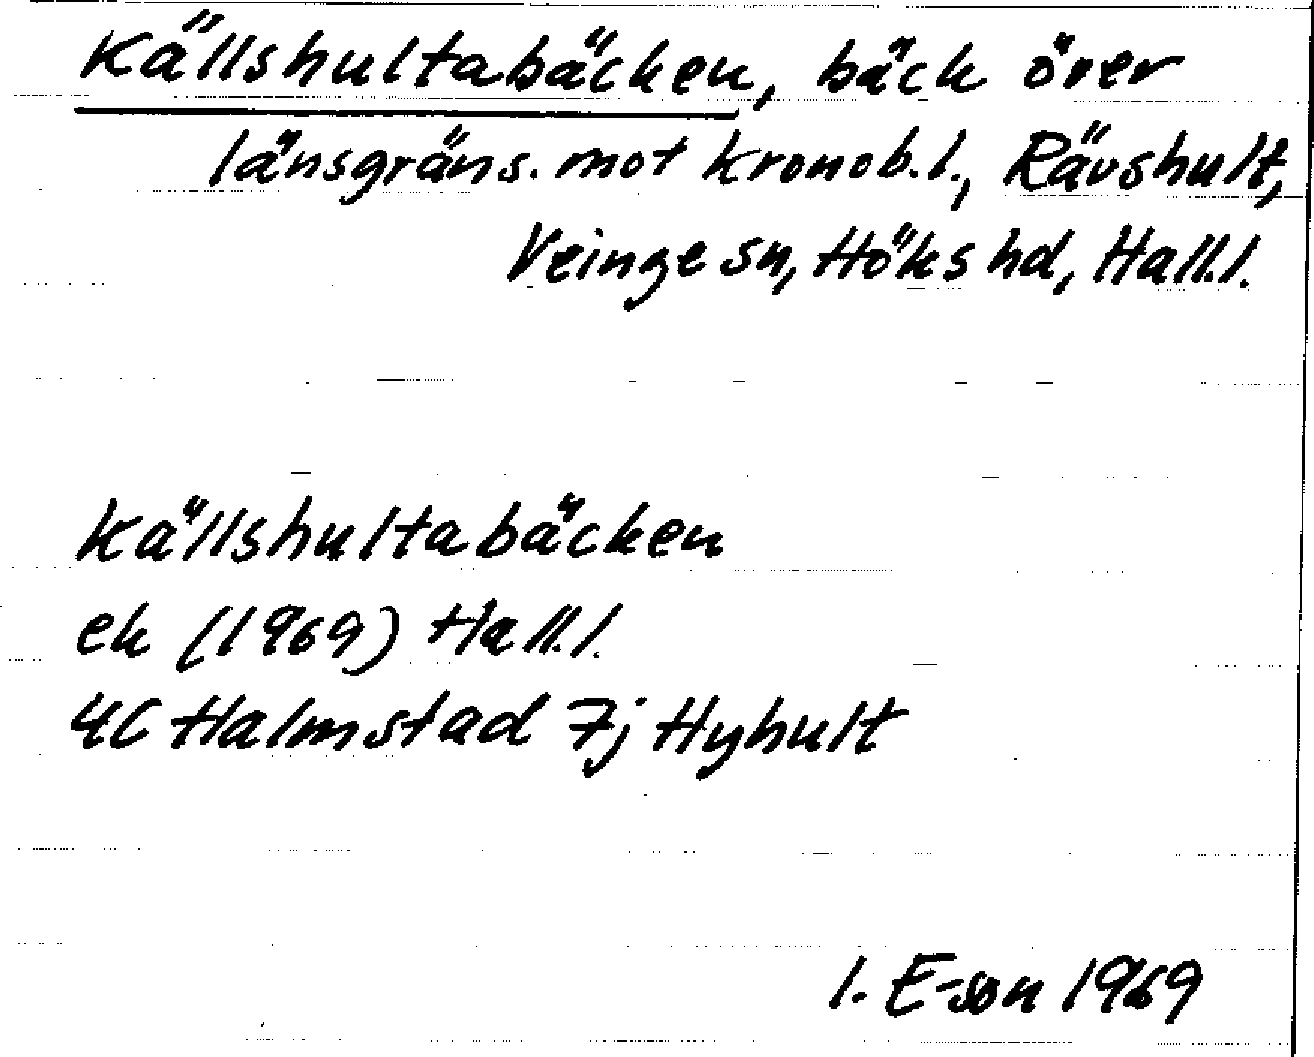 Källshultabäcken, bäck över
länsgräns. mot Kronob.l., Rävshult,
Veinge sn, Höks hd, Hall.l.
Källshultabäcken
ek (1969) Hall.l.
4C Halmstad 7j Hyhult
I. E-son 1969